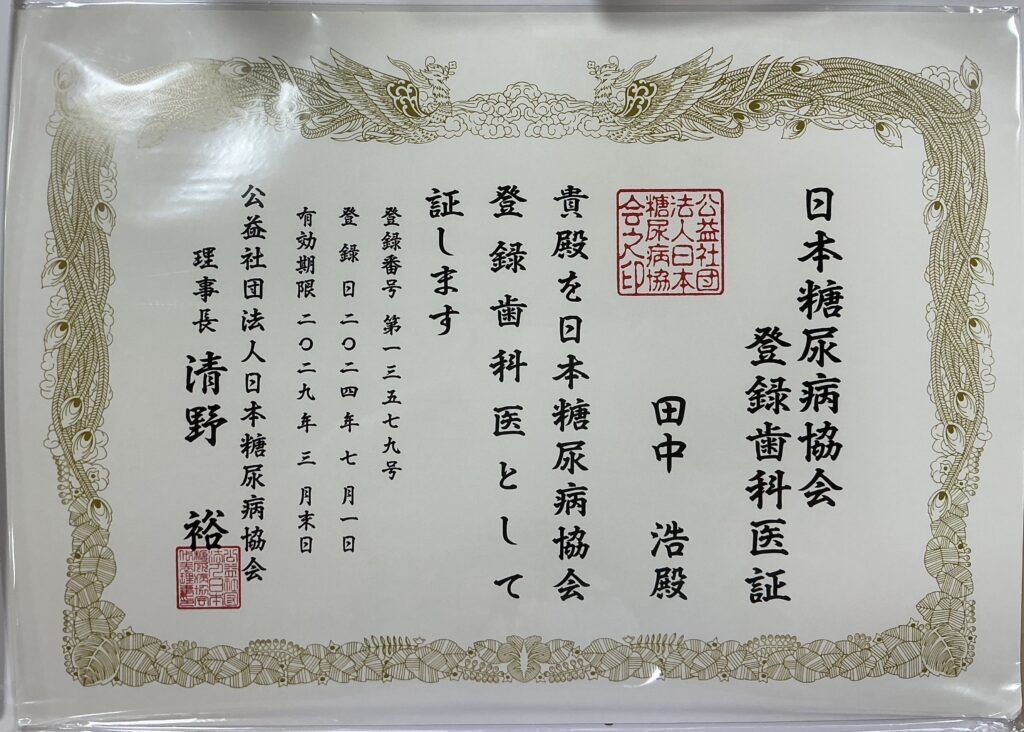 日本糖尿病協会
登録歯科医証
公益社団
法人日本
糖尿病協
会之印
田中 浩殿
貴殿を日本糖尿病協会
登録歯科医として
証します
登録番号 第一三五七九号
登録日 二〇二四年七月一日
有効期限 二〇二九年三月末日
公益社団法人日本糖尿病協会
理事長 清野 裕